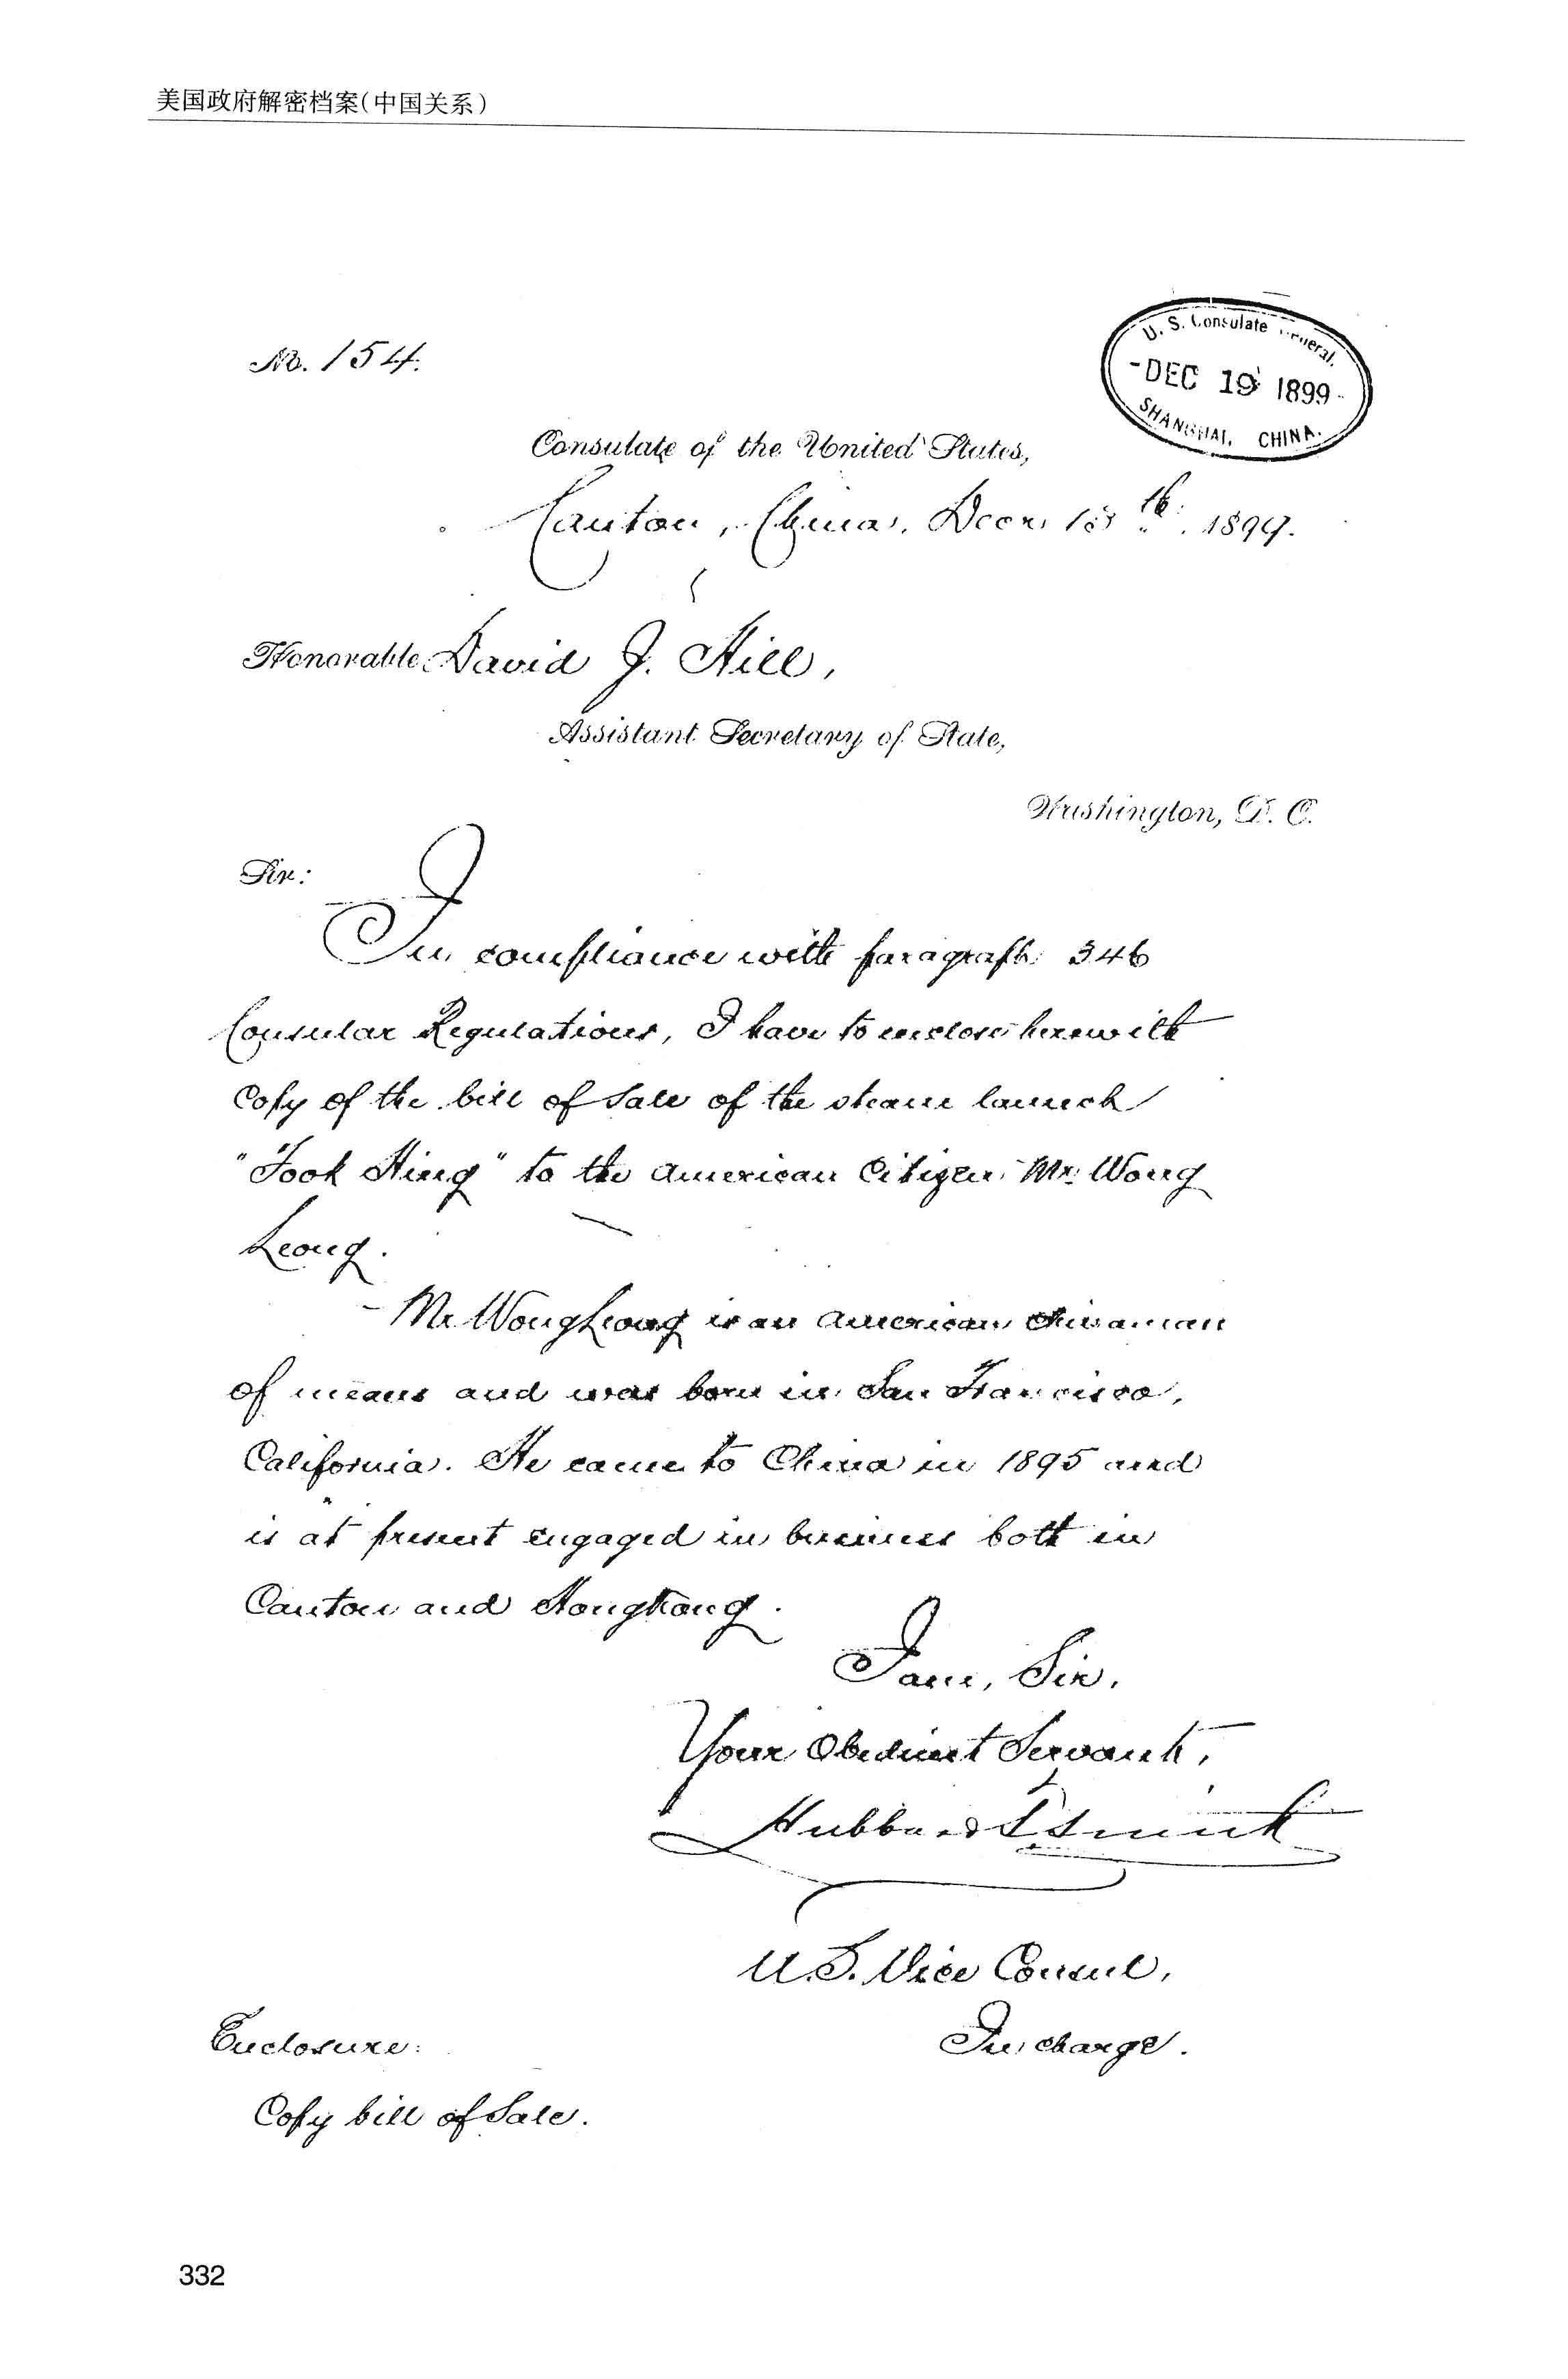 美国政府解密档案(中国关系)
No. 154.
U. S. Consulate General,
-DEC 19 1899-
SHANGHAI, CHINA.
Consulate of the United States,
Canton, China, Decr. 13th. 1899.
Honorable David J. Hill,
Assistant Secretary of State,
Washington, D. C.
Sir:
In compliance with paragraph 346
Consular Regulations, I have to enclose herewith
Copy of the bill of Sale of the steam launch
"Fook Hing" to the American Citizen Mr. Wong
Leong.
Mr Wong Leong is an American Chinaman
of means and was born in San Francisco,
California. He came to China in 1895 and
is at present engaged in business both in
Canton and Hongkong.
I am, Sir,
Your Obedient Servant,
Hubbard T. Smith
U.S. Vice Consul,
In charge.
Enclosure:
Copy bill of Sale.
332